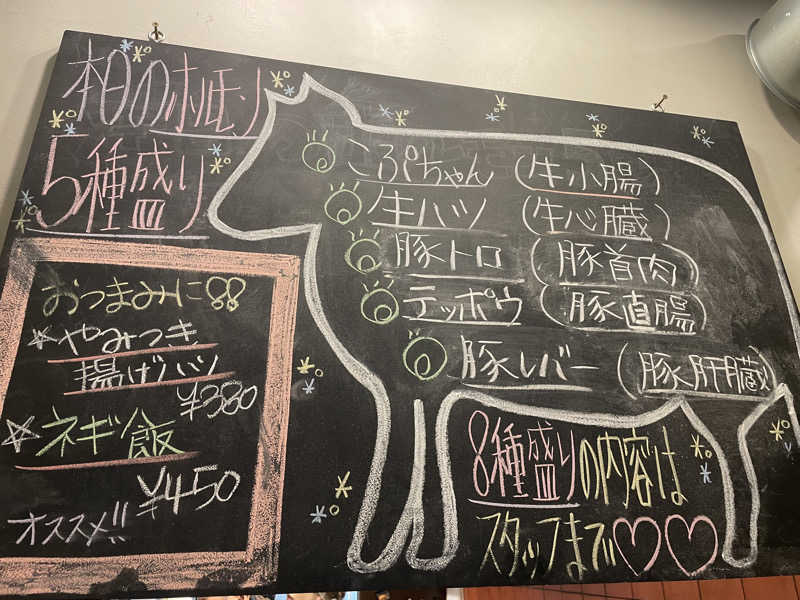 本日のホルモン
5種盛り
こぷちゃん (牛小腸)
牛ハツ (牛心臓)
豚トロ (豚首肉)
テッポウ (豚直腸)
豚レバー (豚肝臓)
おつまみに!!
☆やみつき
揚げパン
¥380
☆ネギ飯
¥450
オススメ!!
8種盛りの内容は
スタッフまで♡♡